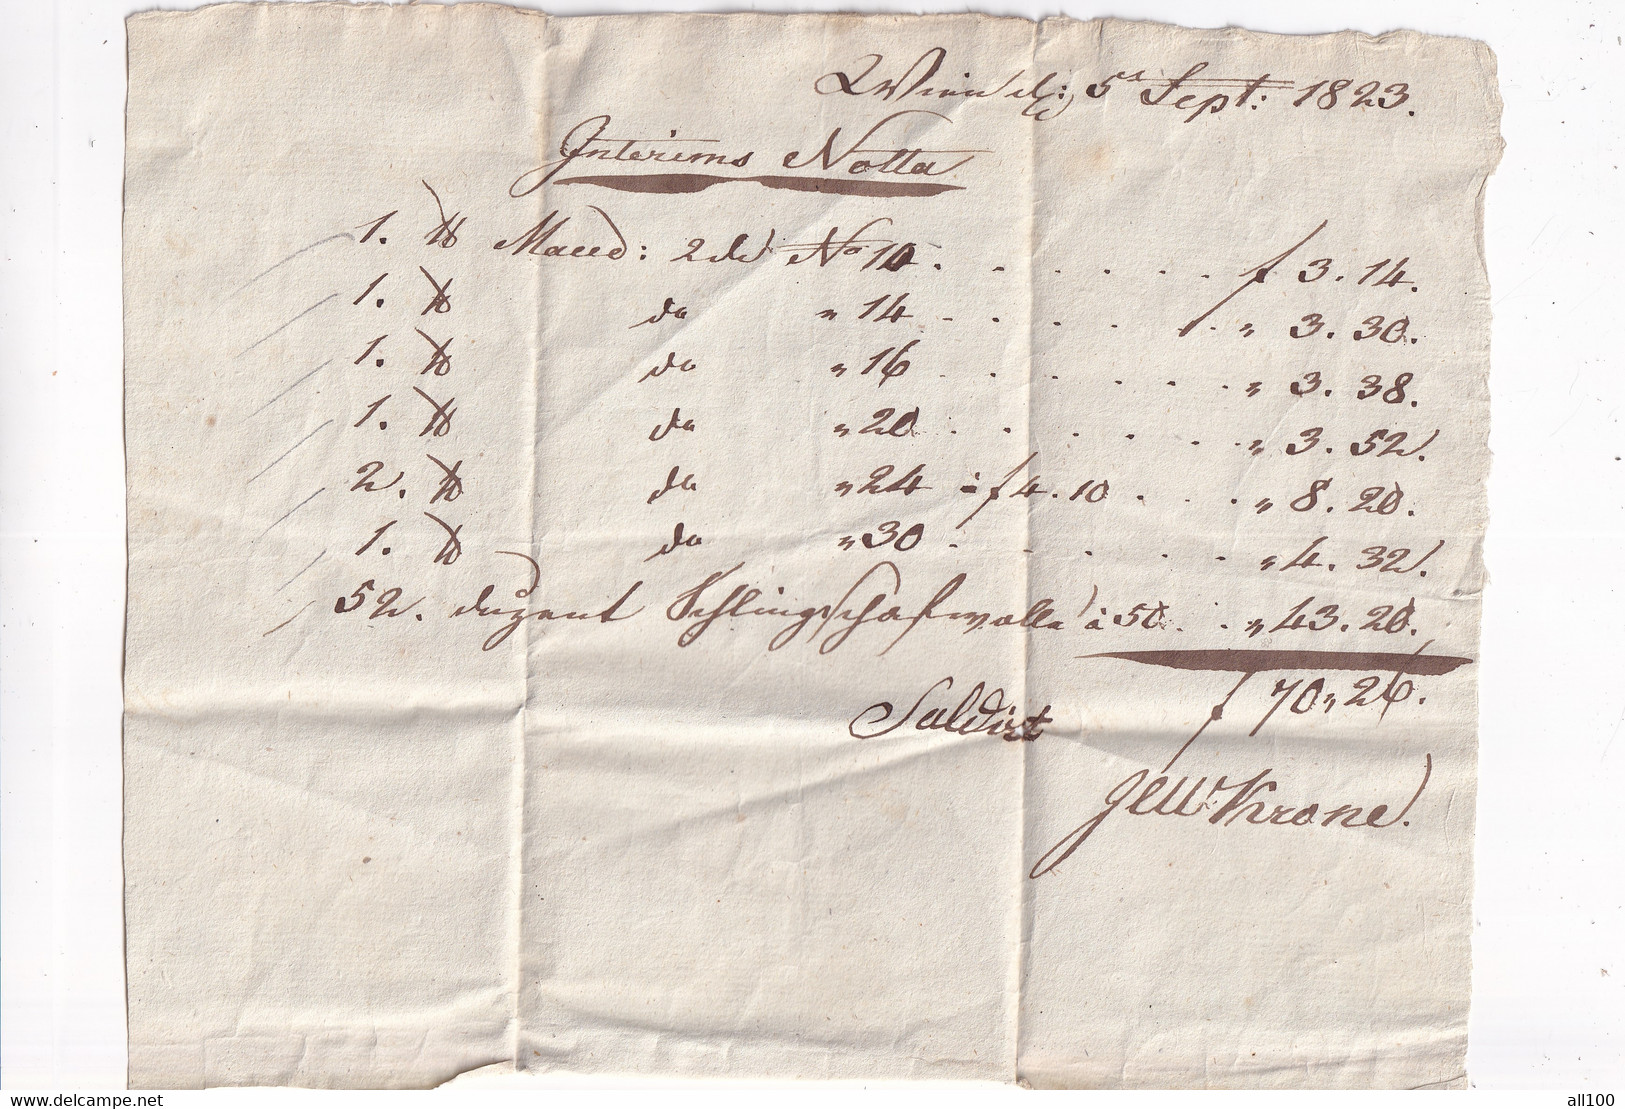 Wien d: 5t Sept: 1823.
Interims Notta
1. ℔ Maced: 2de No 10 . . . . . . f 3. 14.
1. ℔ do " 14 . . . . . " 3. 30.
1. ℔ do " 16 . . . . . . " 3. 38.
1. ℔ do " 20 . . . . . . " 3. 52.
2. ℔ do " 24 à f 4. 10 . . . " 8. 20.
1. ℔ do " 30 . . . . . . " 4. 32.
52. duzent Schlingschafwolle à 50 . . " 43. 20.
f 70 " 26.
Saldirt
Krone.
www.delcampe.net
all100